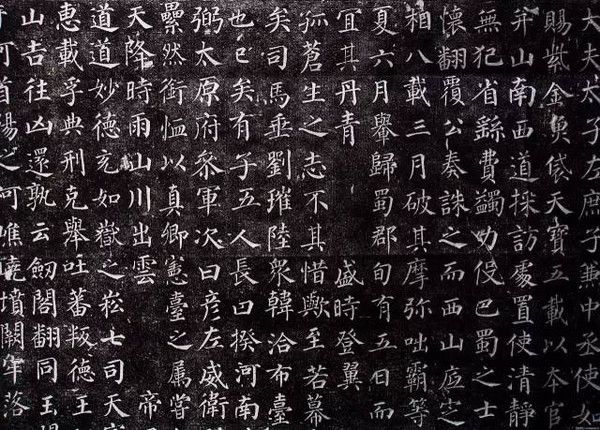 大夫太子左庶子兼中丞使如
賜紫金魚袋天寶五載以本官
并山南西道採訪處置使清靜
無犯省繇費蠲力役巴蜀之士
懷翻覆公奏誅之而西山底定
相八載三月破其摩弥咄霸等
夏六月舉歸蜀郡旬有五日而
宜其丹青 盛時登翼
孤蒼生之志不其惜歟至若幕
矣司馬垂劉璀陸衆韓洽布臺
也已矣有子五人長曰揆河南
弼太原府叅軍次曰彦左威衛
纍然銜恤以真卿憲臺之属嘗
天降時雨山川出雲 帝
道道妙德充如嶽之崧七司天
惠載孚典刑克舉吐蕃叛德王
山吉往凶還孰云劒閣翻同玉
首陽之阿嶕嶢墳闕牢落